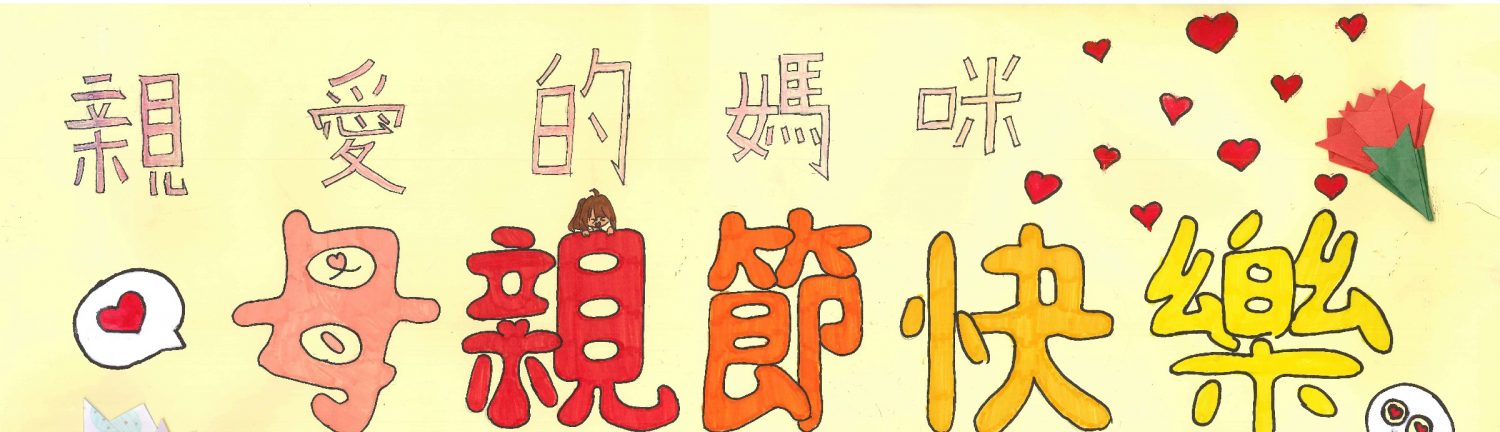 親愛的媽咪
母親節快樂